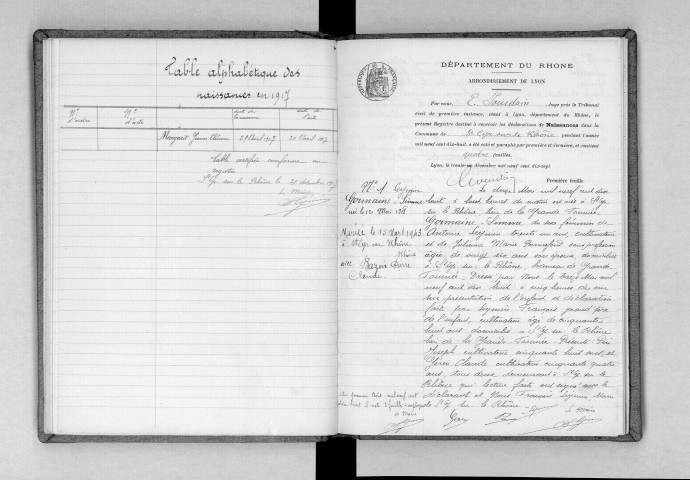 Table alphabétique des
naissances en 1917
Nos
d'ordre
Nos
d'acte
29 Avril 1917
Table certifiée conforme au
registre
St Cyr sur le Rhône le 31 décembre 1917
Le Maire
DÉPARTEMENT DU RHONE
ARRONDISSEMENT DE LYON
Par nous, E. Jourdain, Juge près le Tribunal
civil de première instance, séant à Lyon, département du Rhône, le
présent Registre destiné à recevoir les déclarations de Naissances dans la
Commune de St Cyr sur le Rhône pendant l'année
mil neuf cent dix-huit, a été coté et paraphé par première et dernière, et contient
quatre feuilles.
Lyon, le trente un décembre mil neuf cent dix-sept
Première feuille
No 1
Germaine Simone
née le 12 Mai 1918
Mariée le 13 Avril
à St Cyr sur Rhône
Rhône
avec
Claude
Le douze Mai mil neuf cent dix
huit, à huit heures du matin est née à St Cyr
sur le Rhône, lieu de la Grande Tournée
Germaine Simone du sexe féminin de
Antoine Seguin trente un ans, cultivateur
et de Julienne Marie sans profession
âgée de vingt six ans son épouse, domiciliés
à St Cyr sur le Rhône, hameau de Grande
Tournée. Dressé par Nous le treize Mai mil
neuf cent dix huit à cinq heures du soir
sur présentation de l'enfant et déclaration
faite par Seguin François grand père
de l'enfant, cultivateur âgé de cinquante
huit ans domicilié à St Cyr sur le Rhône
lieu de la Grande Tournée. Présents
Joseph cultivateur cinquante huit ans, et
Claude cultivateur cinquante quatre
ans, tous deux demeurant à St Cyr sur le
Rhône qui lecture faite ont signé avec le
déclarant et Nous François Seguin, Maire
de St Cyr sur le Rhône
Le Maire